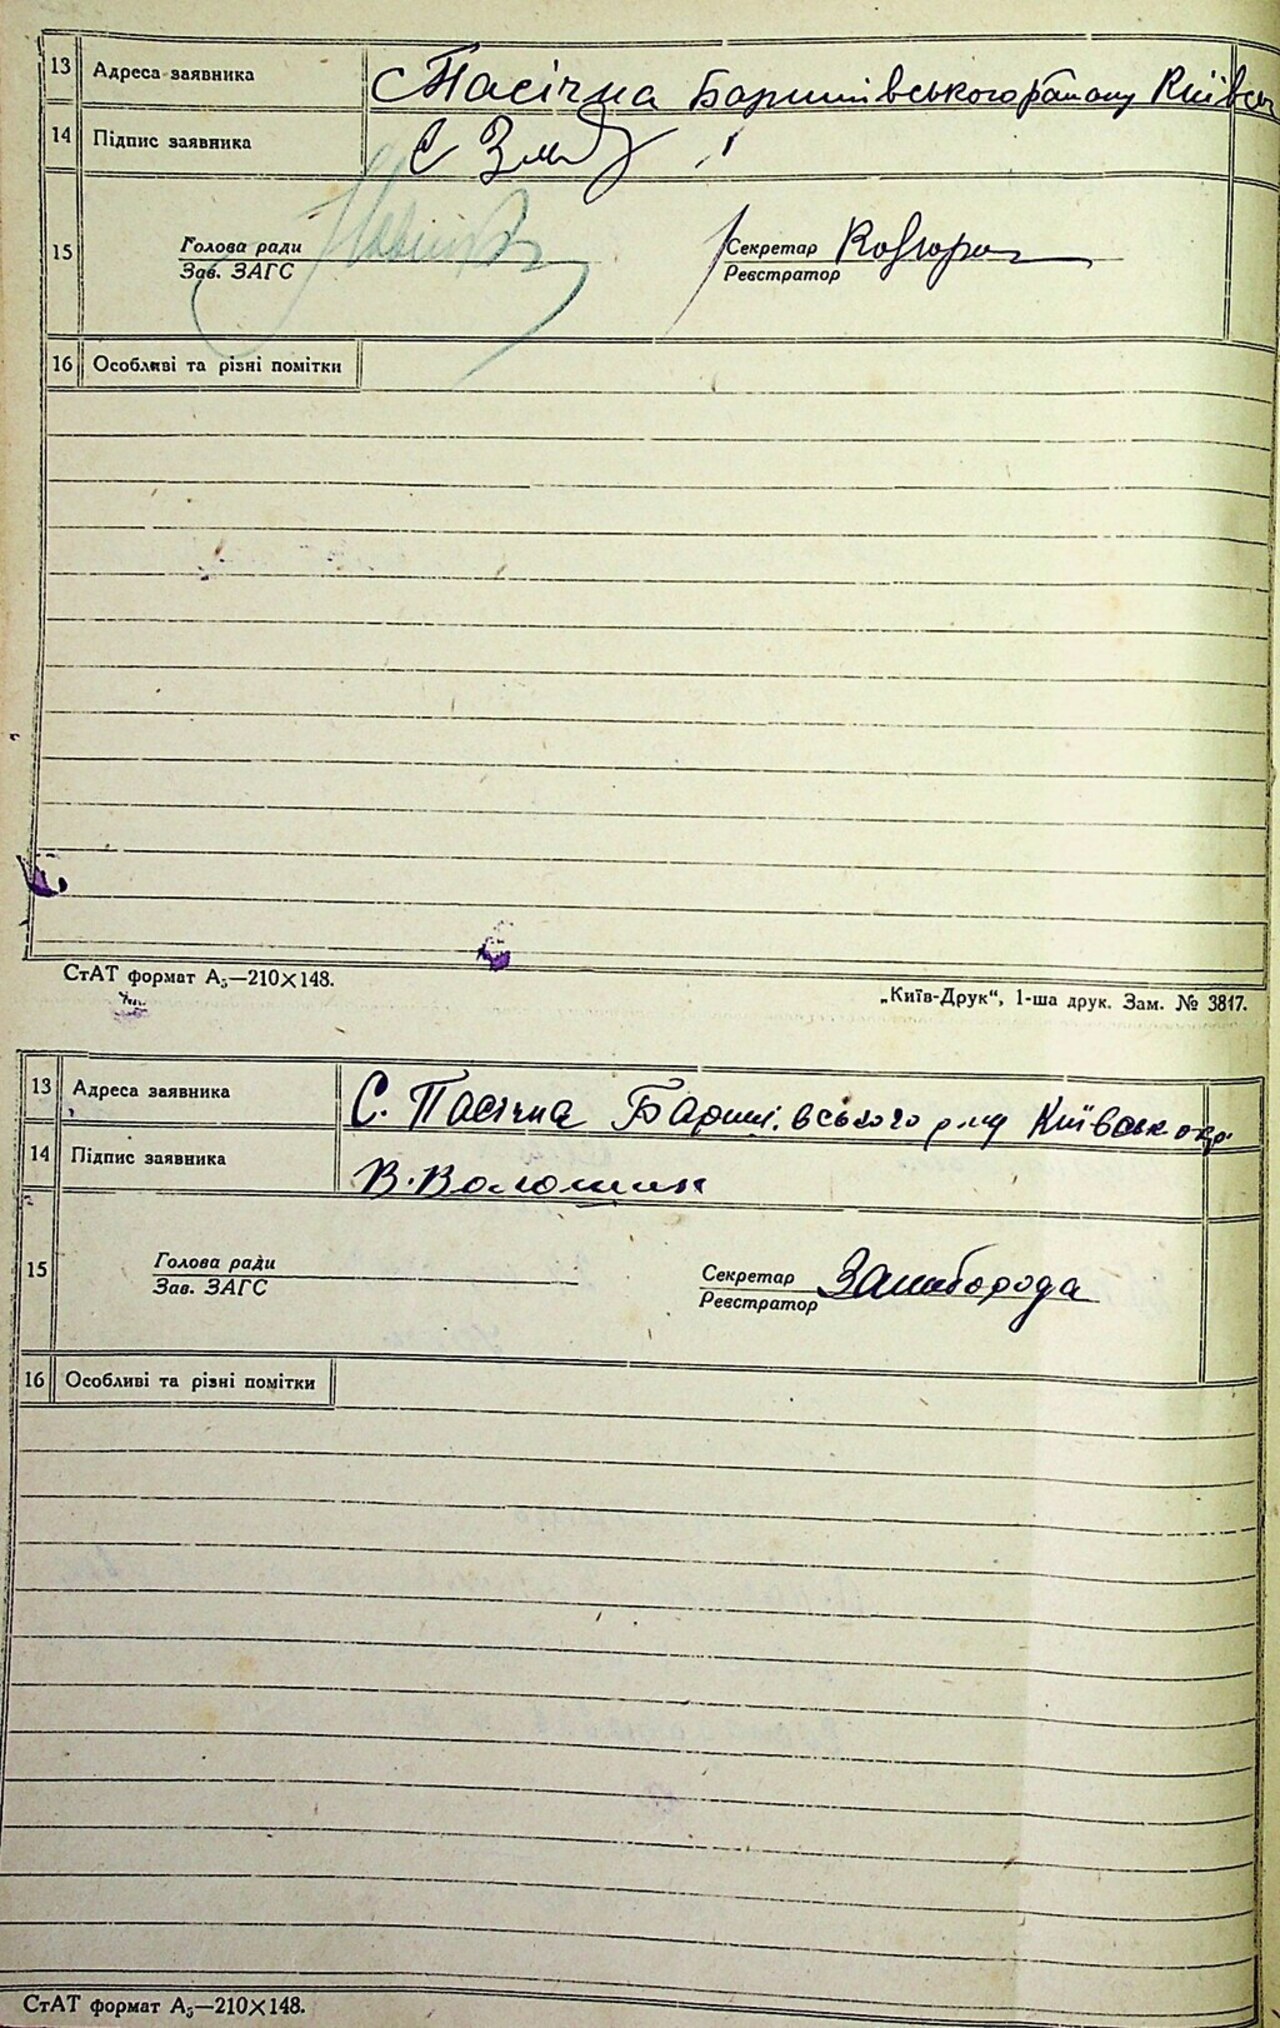 13 Адреса заявника с Пасічна Баришівського району Київськ
14 Підпис заявника С
15 Голова ради Секретар
Зав. ЗАГС Реєстратор
16 Особливі та різні помітки
СтАТ формат А₅—210×148.
„Київ-Друк“, 1-ша друк. Зам. № 3817.
13 Адреса заявника С. Пасічна Бариш.вського р-ну Київськ окр.
14 Підпис заявника В. Волошин
15 Голова ради Секретар
Зав. ЗАГС Реєстратор
16 Особливі та різні помітки
СтАТ формат А₅—210×148.